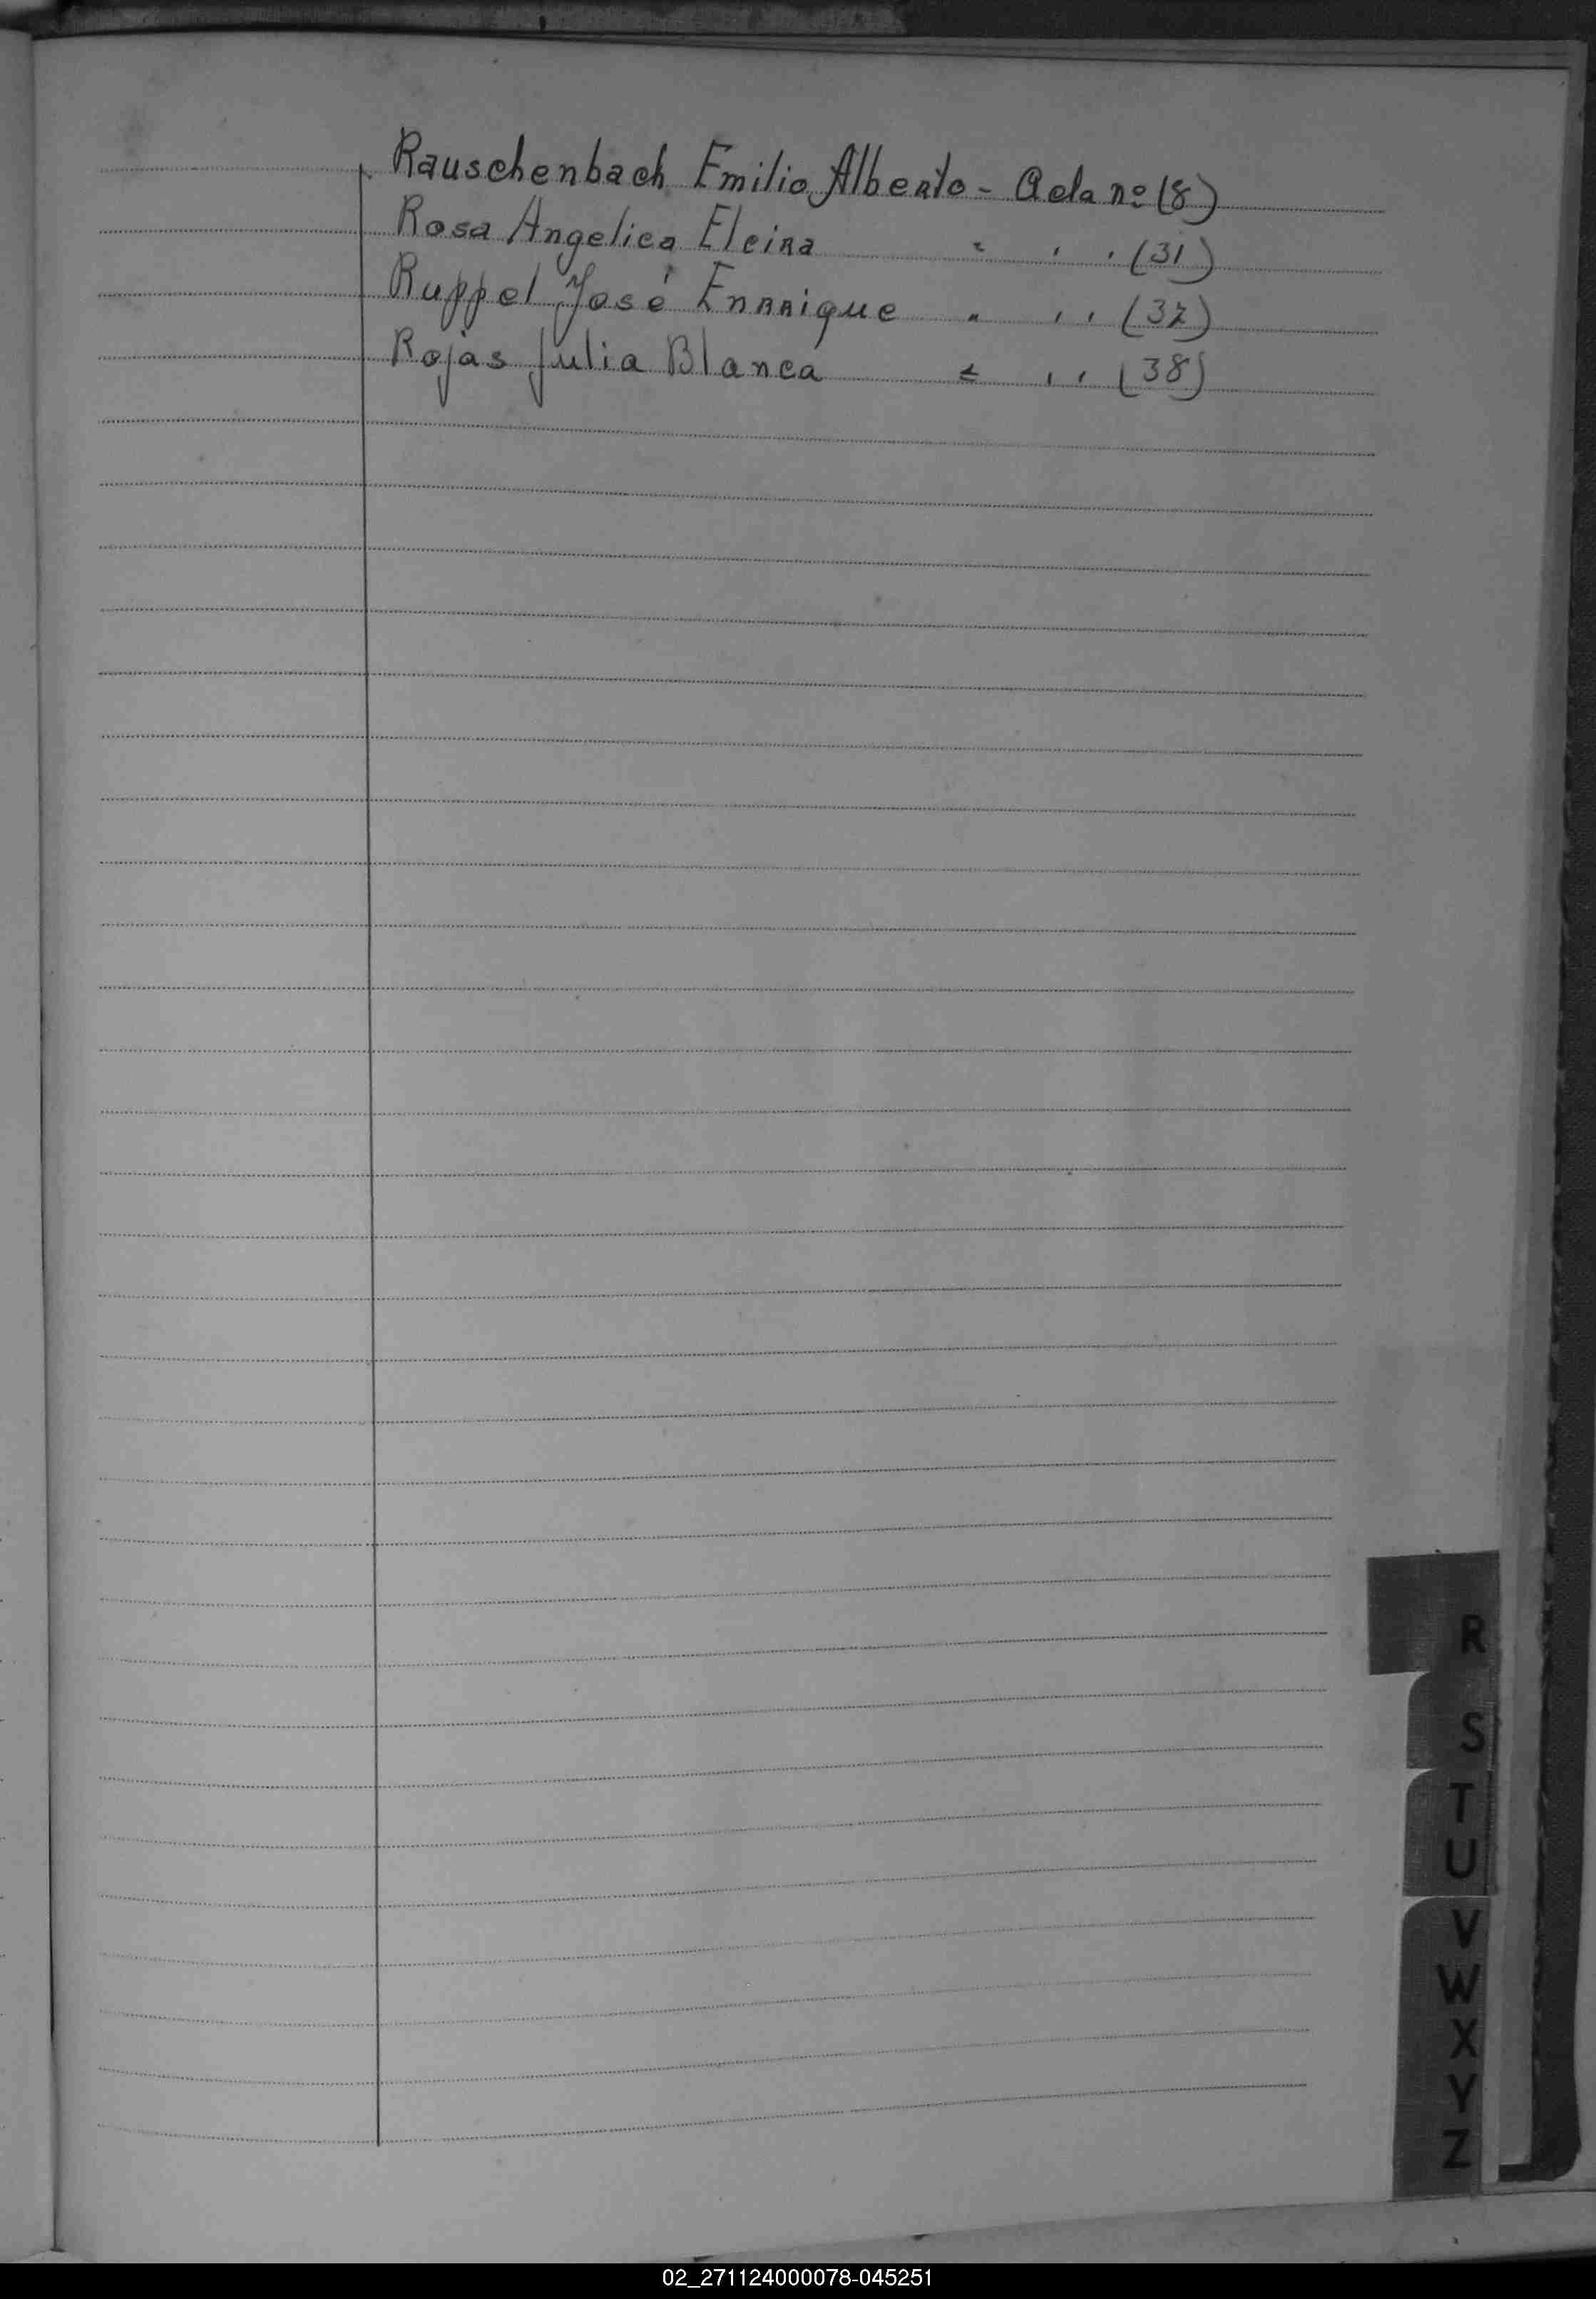 Rauschenbach Emilio Alberto - Acta nº (8)
Rosa Angelica Elcira " " " (31)
Ruppel José Enrrique " " " (37)
Rojas Julia Blanca " " " (38)
R
S
T
U
V
W
X
Y
Z
02_271124000078-045251